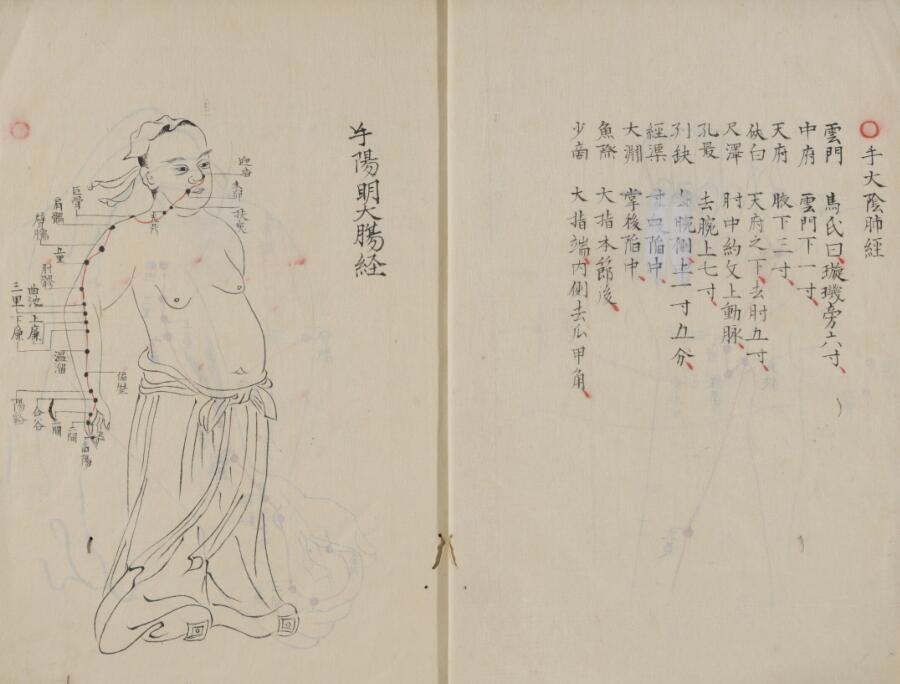 手太陰肺經
雲門 馬氏曰璇璣旁六寸
中府 雲門下一寸
天府 腋下三寸
俠白 天府之下去肘五寸
尺澤 肘中約文上動脉
孔最 去腕上七寸
列缺 去腕側上一寸五分
經渠 寸口陷中
大渊 掌後陷中
魚際 大指本節後
少商 大指端内側去爪甲角
手陽明大腸経
迎香
禾節
扶突
天鼎
巨骨
肩髃
臂臑
五里
肘髎
曲池
三里
上廉
下廉
温溜
偏歷
陽谿
合谷
三間
二間
商陽